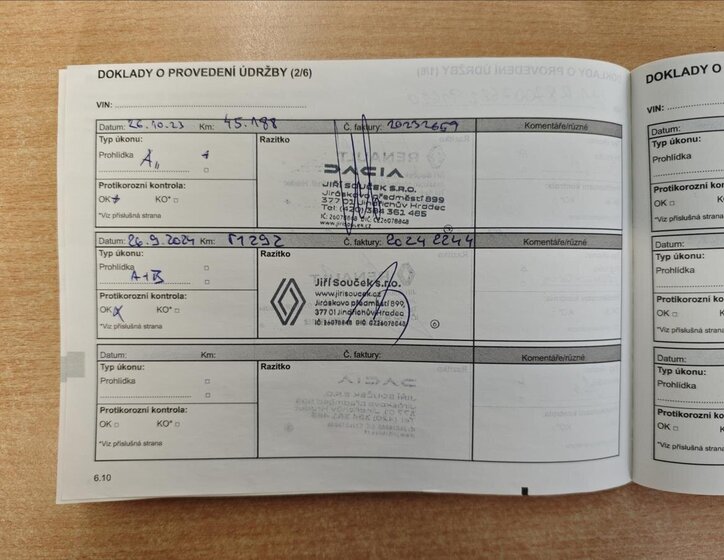 DOKLADY O PROVEDENÍ ÚDRŽBY (2/6)
VIN:
Datum: 26.10.23 Km: 45.188 Č. faktury: 20232659 Komentáře/různé
Typ úkonu: Razítko
Prohlídka A
DACIA
JIŘÍ SOUČEK S.R.O.
Jiráskovo předměstí 899
377 01 Jindřichův Hradec
Tel: (420) 384 361 485
IČ: 26078848 DIČ: CZ26078848
www.jirisoucek.cz
Protikorozní kontrola:
OK KO*
*Viz příslušná strana
Datum: 26.9.2024 Km: Č. faktury: 20242244 Komentáře/různé
Typ úkonu: Razítko
Prohlídka
A+B
Jiří Souček s.r.o.
www.jirisoucek.cz
Jiráskovo předměstí 899,
377 01 Jindřichův Hradec
IČ: 26078848 DIČ: CZ26078848
Protikorozní kontrola:
OK X KO*
*Viz příslušná strana
Datum: Km: Č. faktury: Komentáře/různé
Typ úkonu: Razítko
Prohlídka
Protikorozní kontrola:
OK KO*
*Viz příslušná strana
6.10
DOKLADY O
VIN:
Datum:
Typ úkonu:
Prohlídka
Protikorozní kontrola:
OK KO*
*Viz příslušná strana
Datum:
Typ úkonu:
Prohlídka
Protikorozní kontrola:
OK KO*
*Viz příslušná strana
Datum:
Typ úkonu:
Prohlídka
Protikorozní kontrola:
OK KO*
*Viz příslušná strana